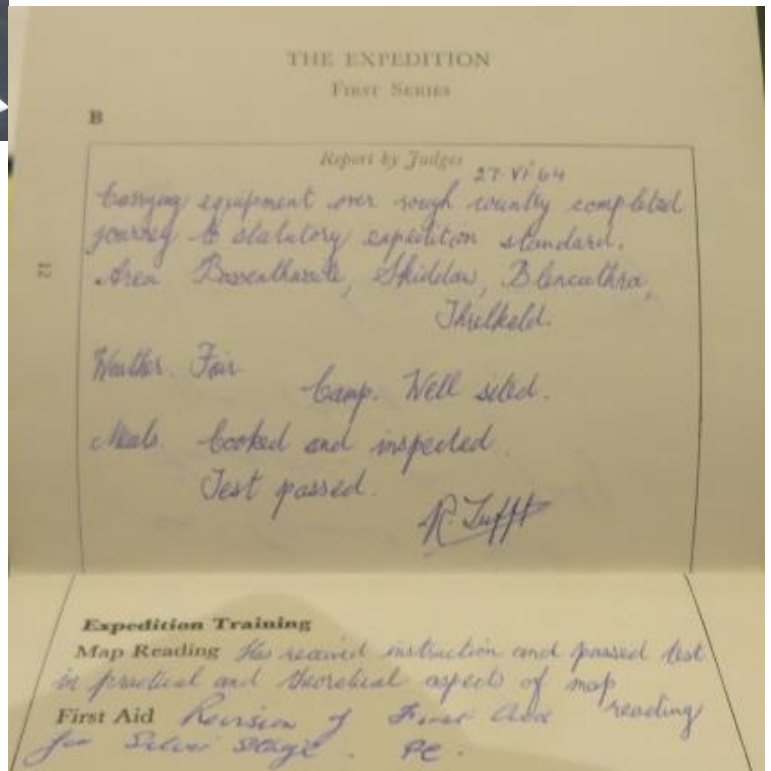 THE EXPEDITION
FIRST SERIES
B
Report by Judges
27 VI 64
Carrying equipment over rough country completed
journey to statutory expedition standard.
Area Bassenthwaite, Skiddaw, Blencathra,
Threlkeld.
Weather. Fair
Camp. Well sited.
Meals. Cooked and inspected.
Test passed.
R. Tufft
12
Expedition Training
Map Reading Has received instruction and passed test
in practical and theoretical aspect of map
reading
First Aid Revision of First Aid
for Silver Stage. PC.